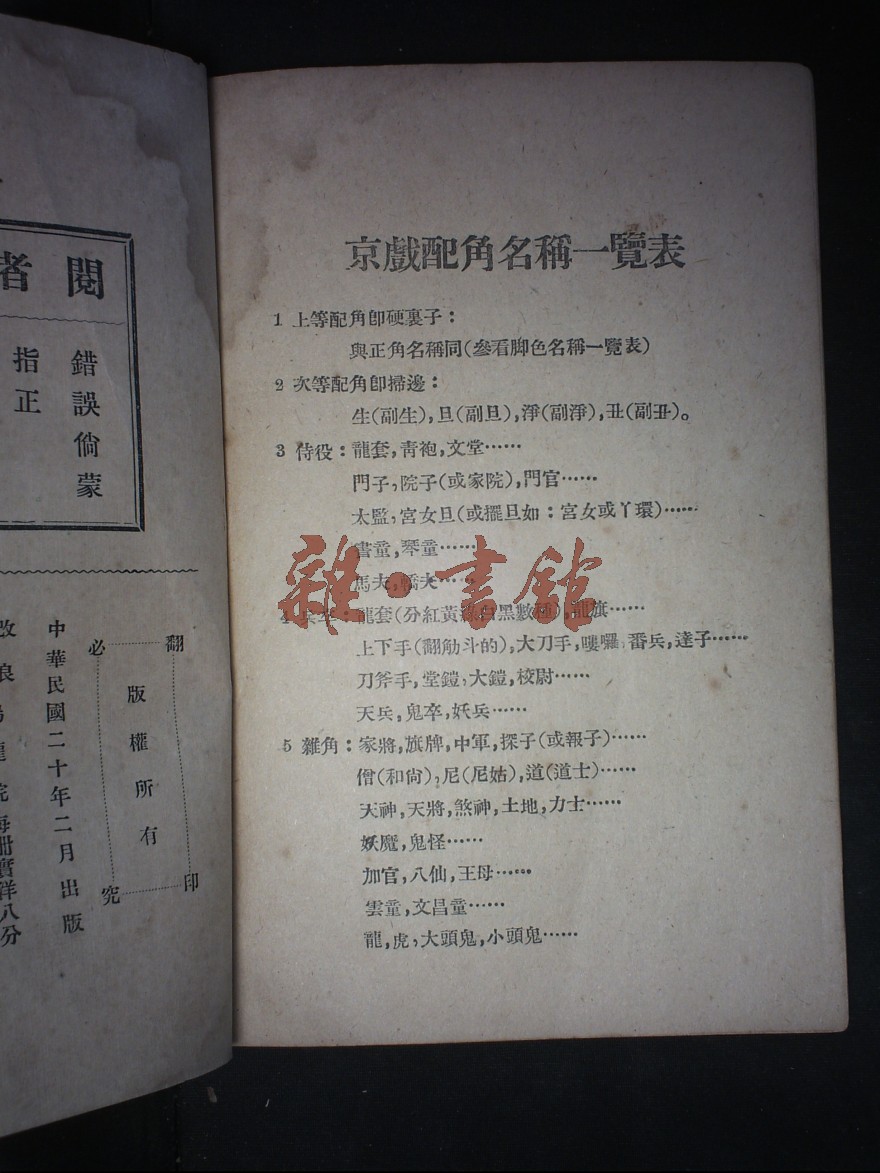 京戲配角名稱一覽表
1 上等配角卽硬裏子：
與正角名稱同(參看脚色名稱一覽表)
2 次等配角卽掃邊：
生(副生),旦(副旦),淨(副淨),丑(副丑)。
3 侍役：龍套,靑袍,文堂……
門子,院子(或家院),門官……
太監,宮女旦(或擺旦如：宮女或丫環)……
書童,琴童……
馬夫,轎夫……
4 兵卒：龍套(分紅黃綠白黑數種),龍旗……
上下手(翻觔斗的),大刀手,嘍囉,番兵,達子……
刀斧手,堂鎧,大鎧,校尉……
天兵,鬼卒,妖兵……
5 雜角：家將,旗牌,中軍,探子(或報子)……
僧(和尙),尼(尼姑),道(道士)……
天神,天將,煞神,土地,力士……
妖魔,鬼怪……
加官,八仙,王母……
雲童,文昌童……
龍,虎,大頭鬼,小頭鬼……
雜·書館
閱者
錯誤倘蒙
指正
翻印必究
版權所有
中華民國二十年二月出版
改良烏龍院每册實洋八分